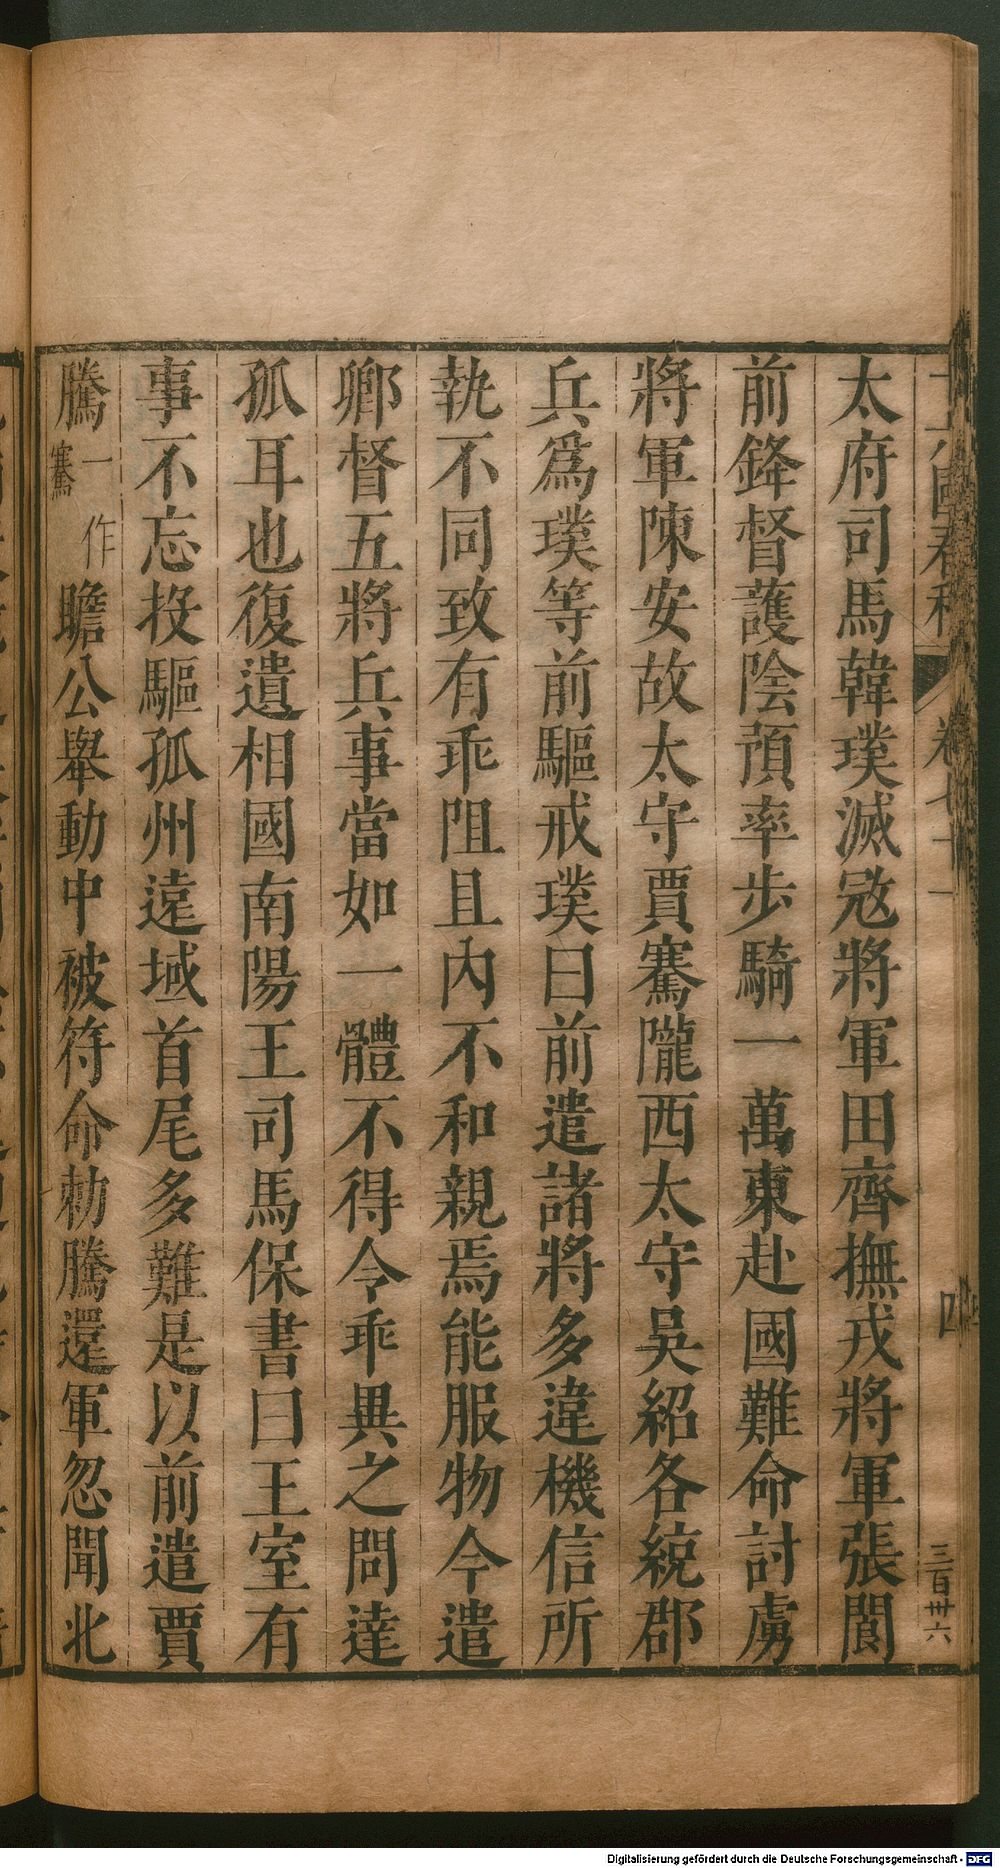 太府司馬韓璞滅㓂將軍田齊撫戎將軍張閬
前鋒督護隂預率步騎一萬東赴國難命討虜
將軍陳安故太守賈騫隴西太守吳紹各統郡
兵爲璞等前驅戒璞曰前遣諸將多違機信所
執不同致有乖阻且內不和親焉能服物今遣
卿督五將兵事當如一體不得令乖異之問達
孤耳也復遺相國南陽王司馬保書曰王室有
事不忘投驅孤州遠域首尾多難是以前遣賈
騰一作騫瞻公舉動中被符命勅騰還軍忽聞北
十六國春秋 卷七十一 四 三百卅六
Digitalisierung gefördert durch die Deutsche Forschungsgemeinschaft - DFG